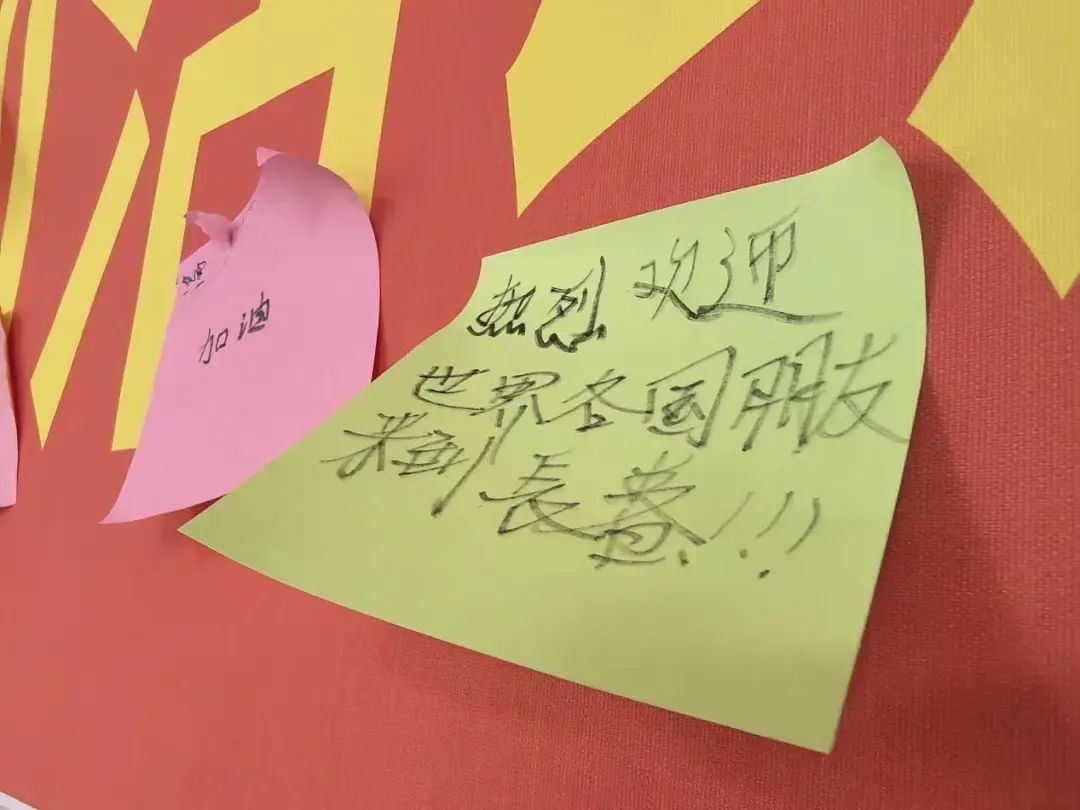 加油
热烈欢迎
世界各国朋友
来到長春!!!